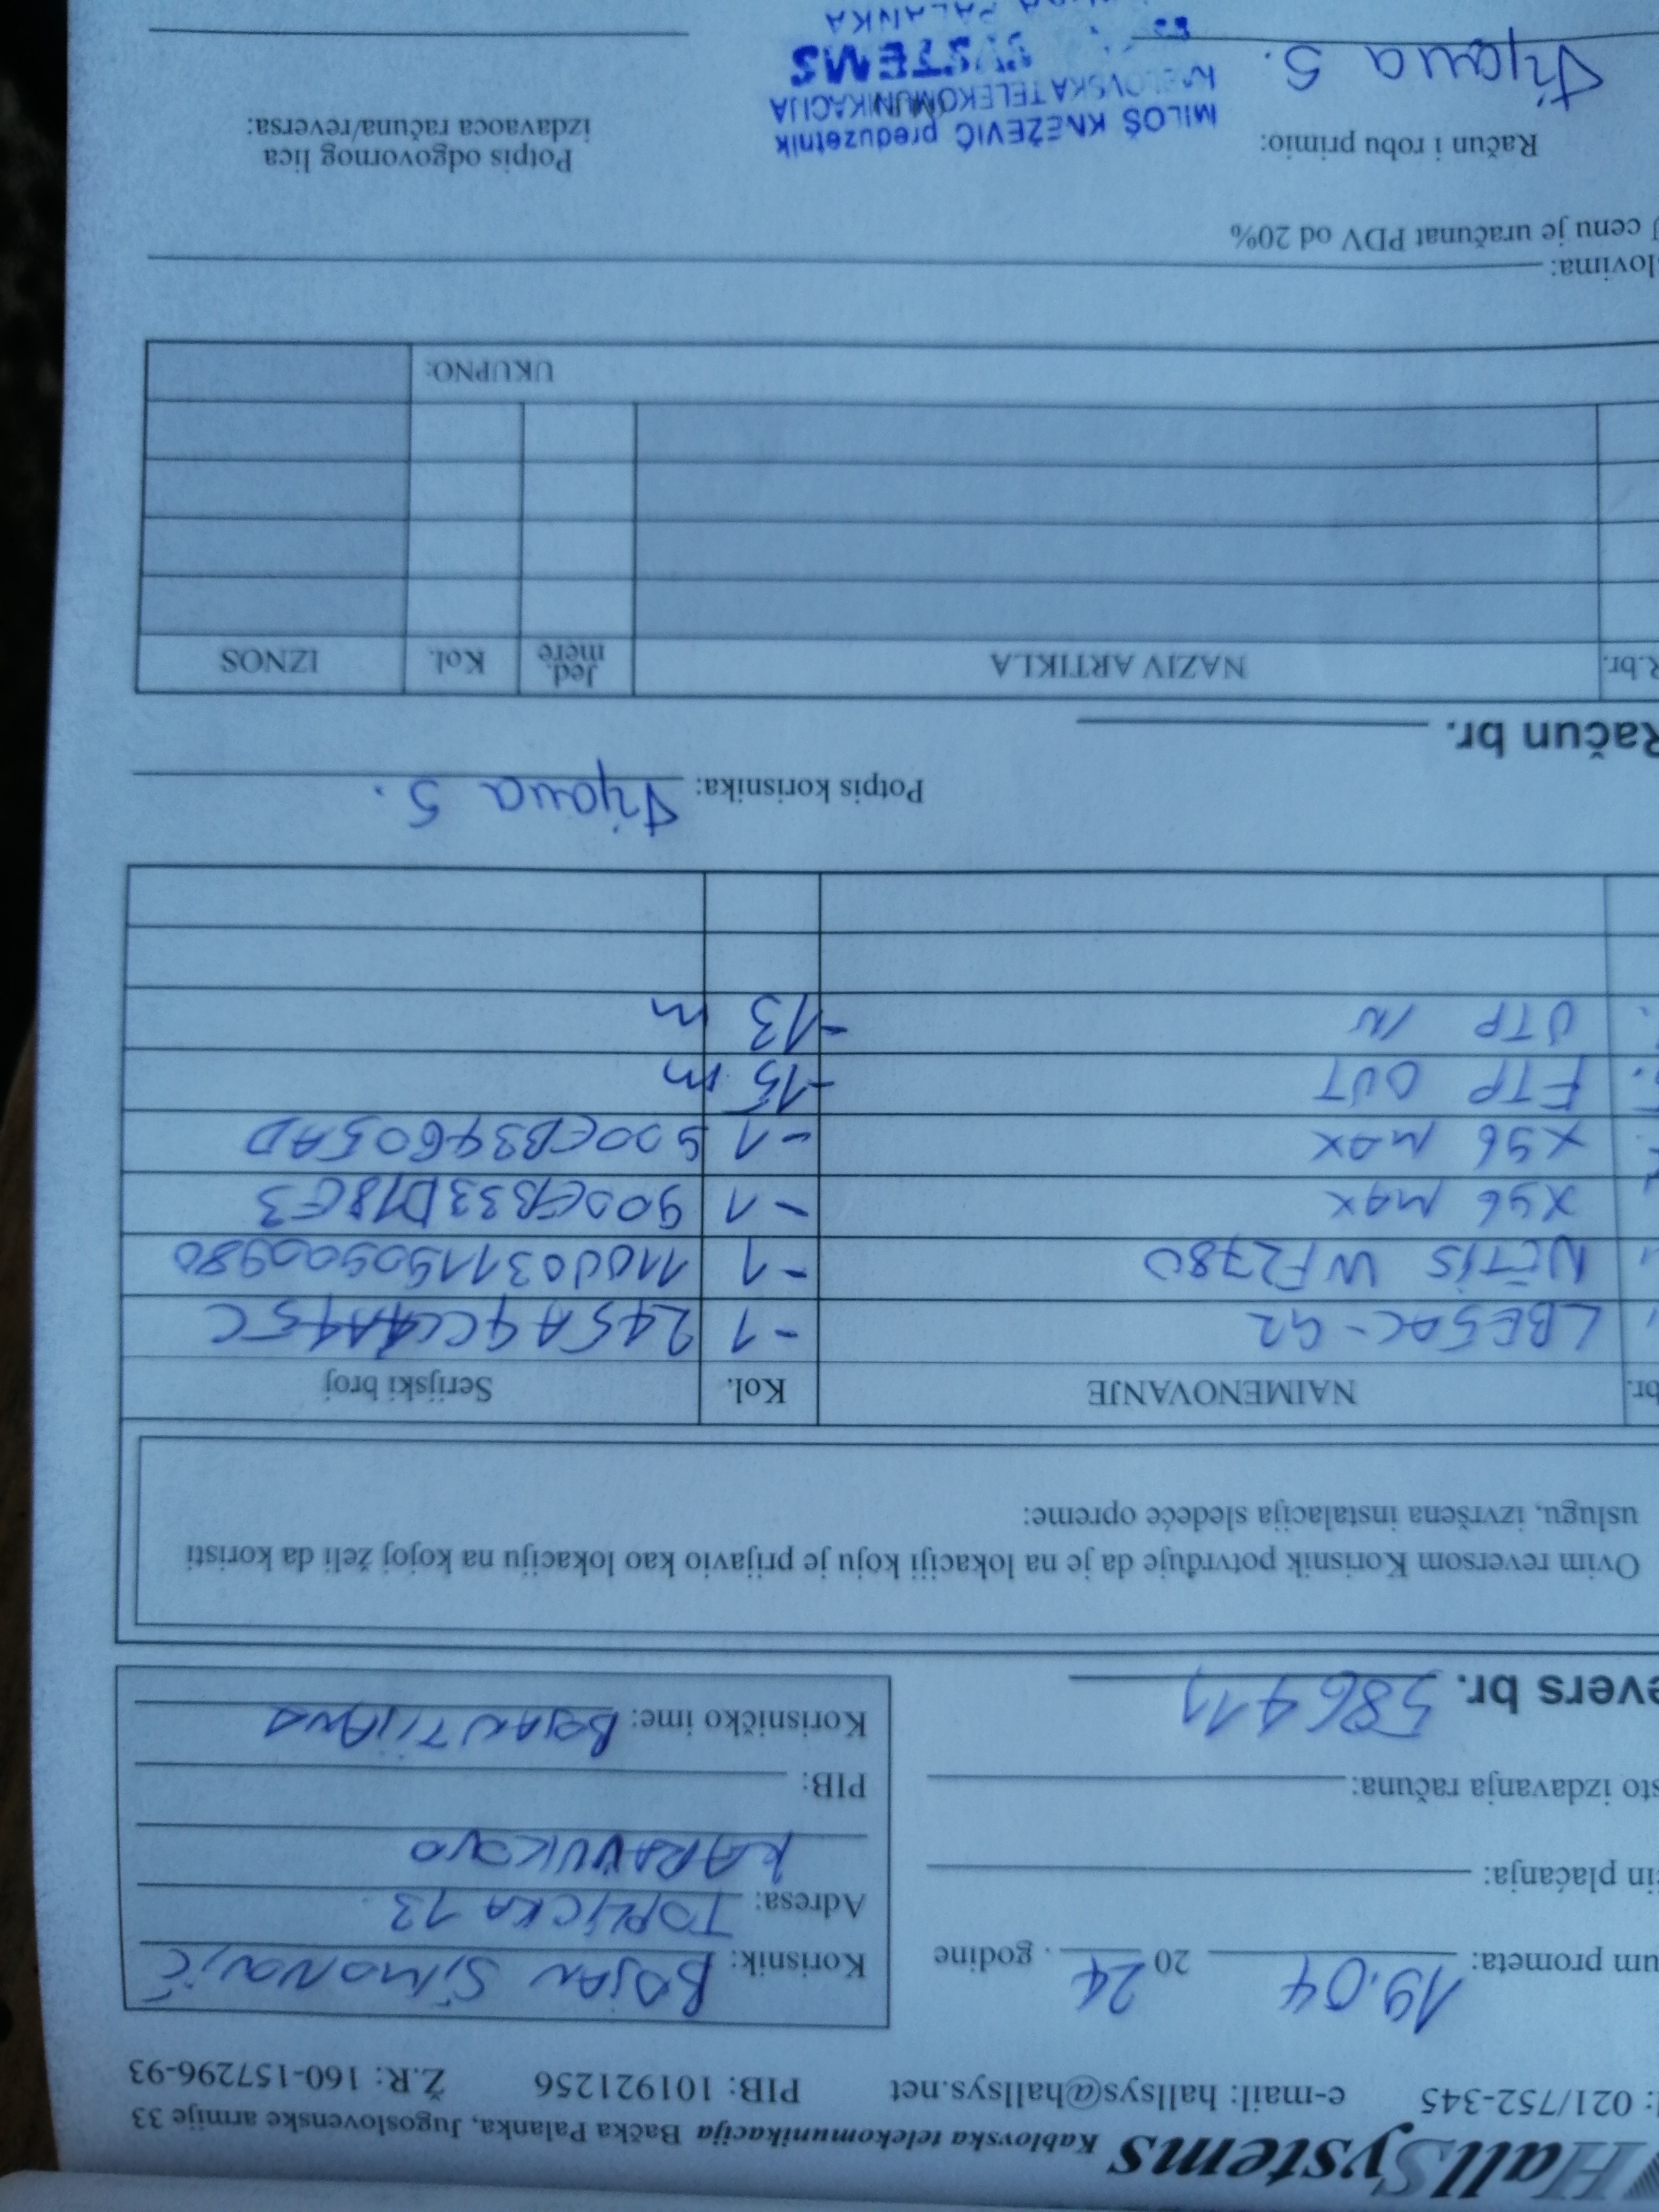 HallSystems Kablovska telekomunikacija Bačka Palanka, Jugoslovenske armije 33
: 021/752-345 e-mail: hallsys@hallsys.net PIB: 101921256 Ž.R: 160-157296-93
um prometa: 19.04 20 24 . godine
Korisnik: BOJAN SIMONOVIĆ
Adresa: TOPLIČKA 13
KARAVUKOVO
in plaćanja:
sto izdavanja računa:
PIB:
Korisničko ime: BOJANTIJANA
evers br. 586411
Ovim reversom Korisnik potvrđuje da je na lokaciji koju je prijavio kao lokaciju na kojoj želi da koristi
uslugu, izvršena instalacija sledeće opreme:
br. NAIMENOVANJE Kol. Serijski broj
LBE5AC-G2 -1
NETIS WF2780 -1
X96 MAX -1
X96 MAX -1
FTP OUT -15 m
UTP IN -13 m
Potpis korisnika: Tijana S.
Račun br.
R.br. NAZIV ARTIKLA Jed. mere Kol. IZNOS
UKUPNO:
lovima:
U cenu je uračunat PDV od 20%
Račun i robu primio:
Tijana S.
MILOŠ KNEŽEVIĆ preduzetnik
KABLOVSKA TELEKOMUNIKACIJA
SYSTEMS
PALANKA
Potpis odgovornog lica
izdavaoca računa/reversa: